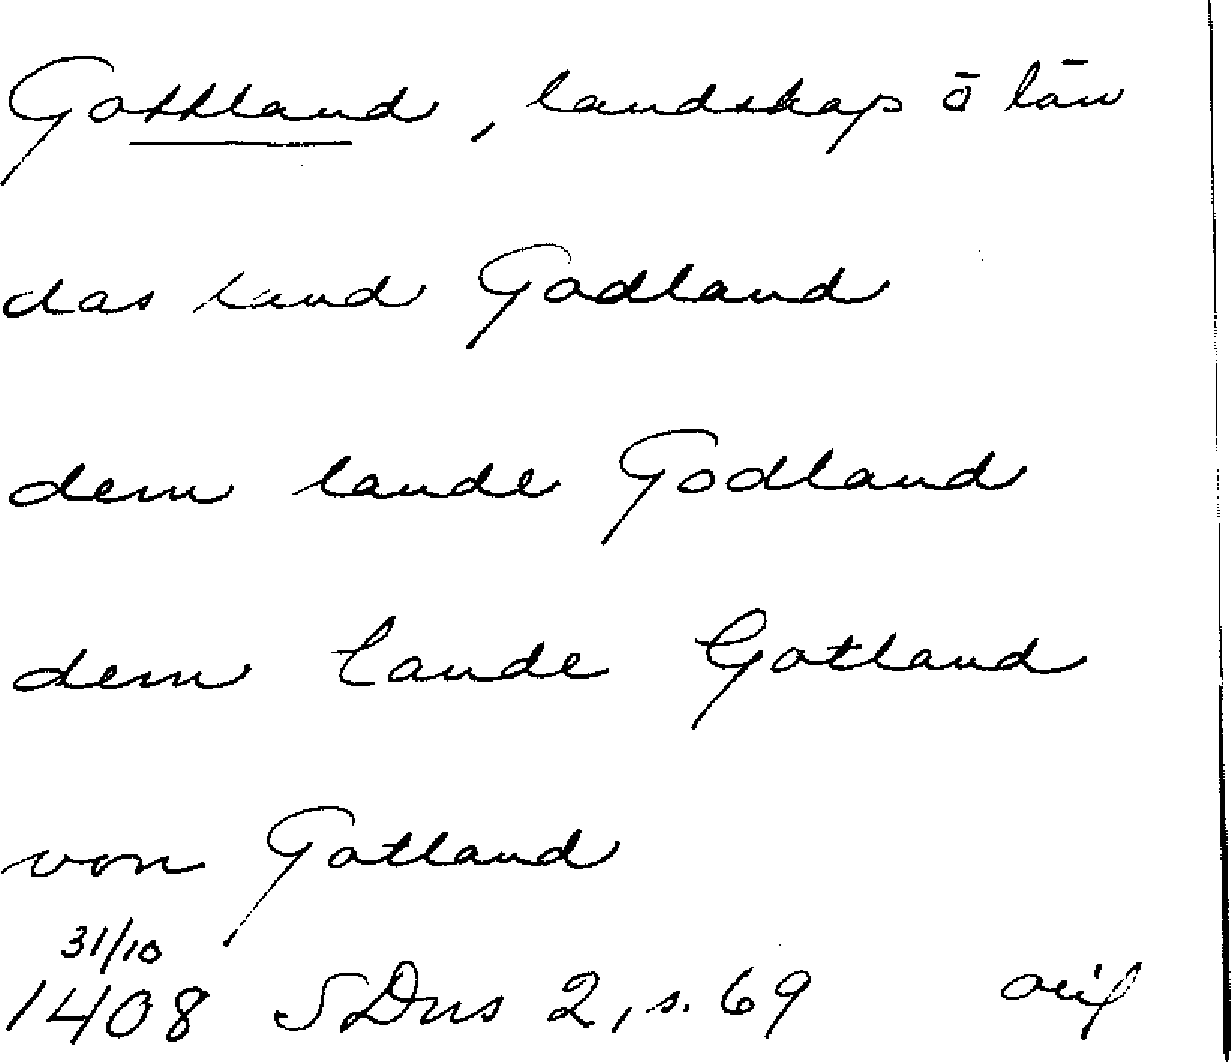 Gottland, landskap ō län
das land Godland
dem lande Godland
dem lande Gotland
von Gotland
31/10
1408 SDns 2, s. 69